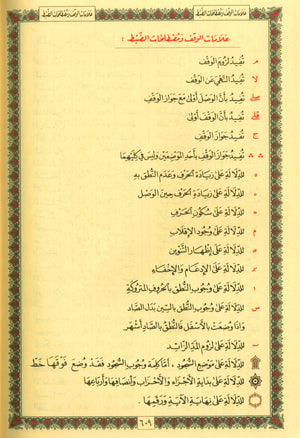 علامات الوقف ومصطلحات الضبط
علامات الوقف ومصطلحات الضبط
عَلَامَاتُ الوَقْفِ وَمُصْطَلَحَاتُ الضَّبْطِ :
م تُفِيدُ لُزُومَ الوَقْفِ
لا تُفِيدُ النَّهْيَ عَنِ الوَقْفِ
صلى تُفِيدُ بِأَنَّ الوَصْلَ أَوْلَىٰ مَعَ جَوَازِ الوَقْفِ
قلى تُفِيدُ بِأَنَّ الوَقْفَ أَوْلَىٰ
ج تُفِيدُ جَوَازَ الوَقْفِ
∴ ∴ تُفِيدُ جَوَازَ الوَقْفِ بِأَحَدِ المَوْضِعَيْنِ وَلَيْسَ فِي كِلَيْهِمَا
للدِّلَالَةِ عَلَىٰ زِيَادَةِ الحَرْفِ وَعَدَمِ النُّطْقِ بِهِ
للدِّلَالَةِ عَلَىٰ زِيَادَةِ الحَرْفِ حِينَ الوَصْلِ
للدِّلَالَةِ عَلَىٰ سُكُونِ الحَرْفِ
م للدِّلَالَةِ عَلَىٰ وُجُودِ الإِقْلَابِ
للدِّلَالَةِ عَلَىٰ إِظْهَارِ التَّنْوِينِ
للدِّلَالَةِ عَلَىٰ الإِدْغَامِ وَالإِخْفَاءِ
للدِّلَالَةِ عَلَىٰ وُجُوبِ النُّطْقِ بِالحُرُوفِ المَتْرُوكَةِ
س للدِّلَالَةِ عَلَىٰ وُجُوبِ النُّطْقِ بِالسِّينِ بَدَلَ الصَّادِ
وَإِذَا وُضِعَتْ بِالأَسْفَلِ فَالنُّطْقُ بِالصَّادِ أَشْهَر
للدِّلَالَةِ عَلَىٰ لُزُومِ المَدِّ الزَّائِدِ
للدِّلَالَةِ عَلَىٰ مَوْضِعِ السُّجُودِ ، أَمَّا كَلِمَةُ وُجُوبِ السُّجُودِ فَقَدْ وُضِعَ فَوْقَهَا خَطّ
للدِّلَالَةِ عَلَىٰ بِدَايَةِ الأَجْزَاءِ وَالأَحْزَابِ وَأَنْصَافِهَا وَأَرْبَاعِهَا
للدِّلَالَةِ عَلَىٰ نِهَايَةِ الآيَةِ وَرَقْمِهَا .
٦٠٩